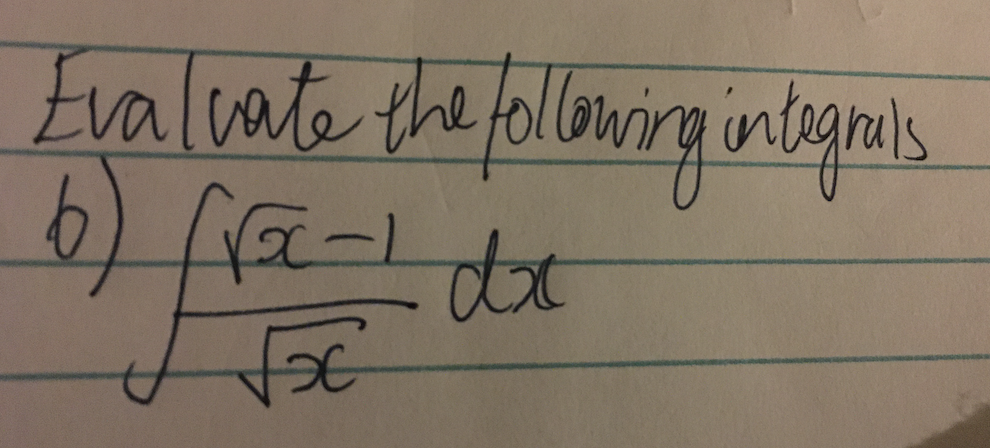 Evaluate the following integrals
b) ∫ (√x - 1)/√x dx